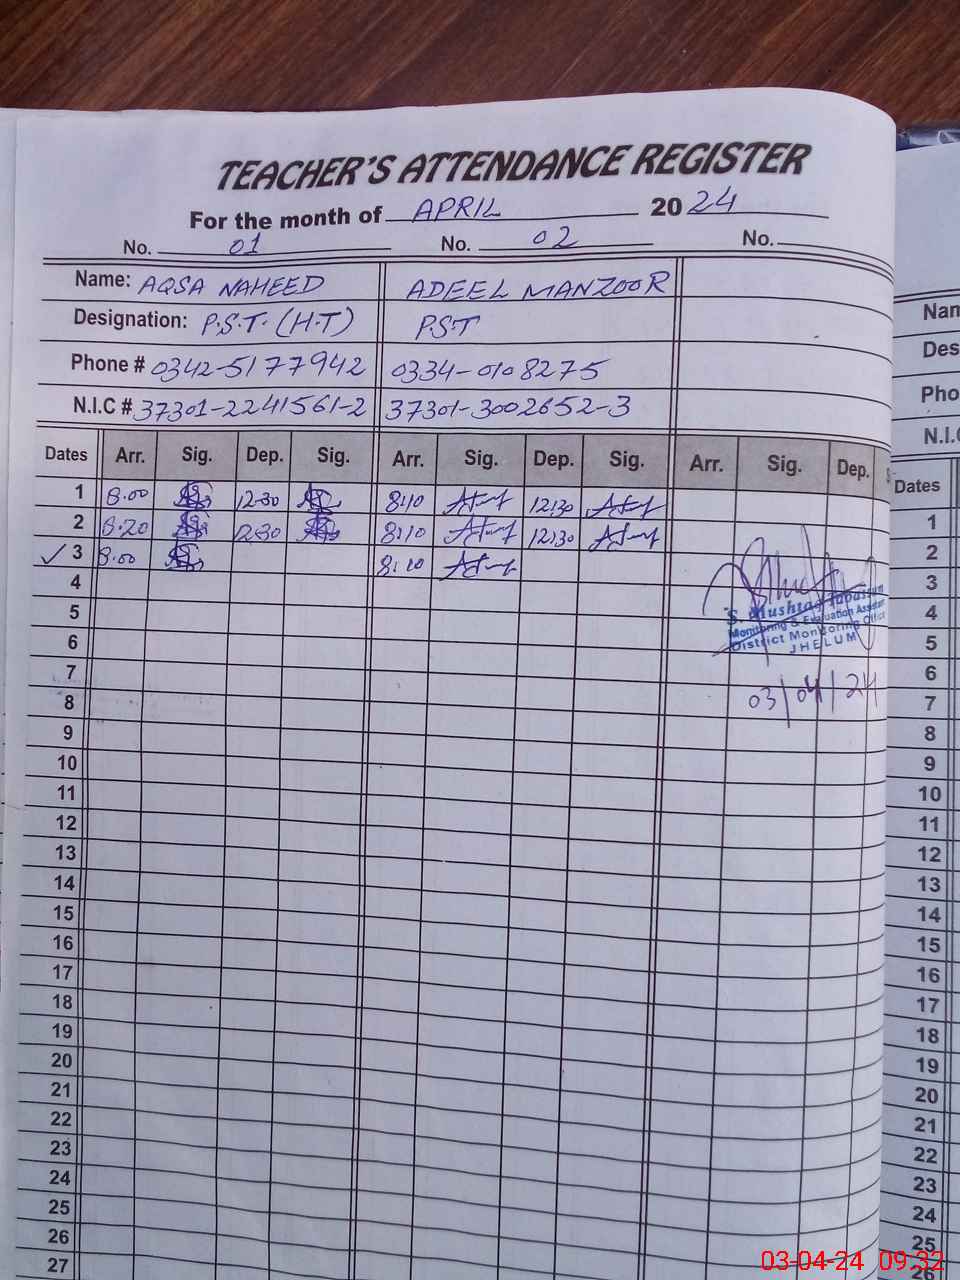 TEACHER'S ATTENDANCE REGISTER
For the month of APRIL 2024
No. 01 No. 02 No.
Name: AQSA NAHEED ADEEL MANZOOR
Designation: P.S.T. (H.T) P.S.T
Phone # 0342-5177942 0334-0108275
N.I.C # 37301-2241561-2 37301-3002652-3
Dates Arr. Sig. Dep. Sig. Arr. Sig. Dep. Sig. Arr. Sig. Dep. S
1 8.00 12.30 8:10 12:30
2 8.20 12.30 8:10 12:30
✓ 3 8.00 8:10
4
5
6
7
8
9
10
11
12
13
14
15
16
17
18
19
20
21
22
23
24
25
26
27
S. Mushtaq Tabassum
Monitoring & Evaluation Assistant
District Monitoring Office
JHELUM
03/04/24
Nam
Des
Pho
N.I.C
Dates
1
2
3
4
5
6
7
8
9
10
11
12
13
14
15
16
17
18
19
20
21
22
23
24
25
26
03-04-24 09:32